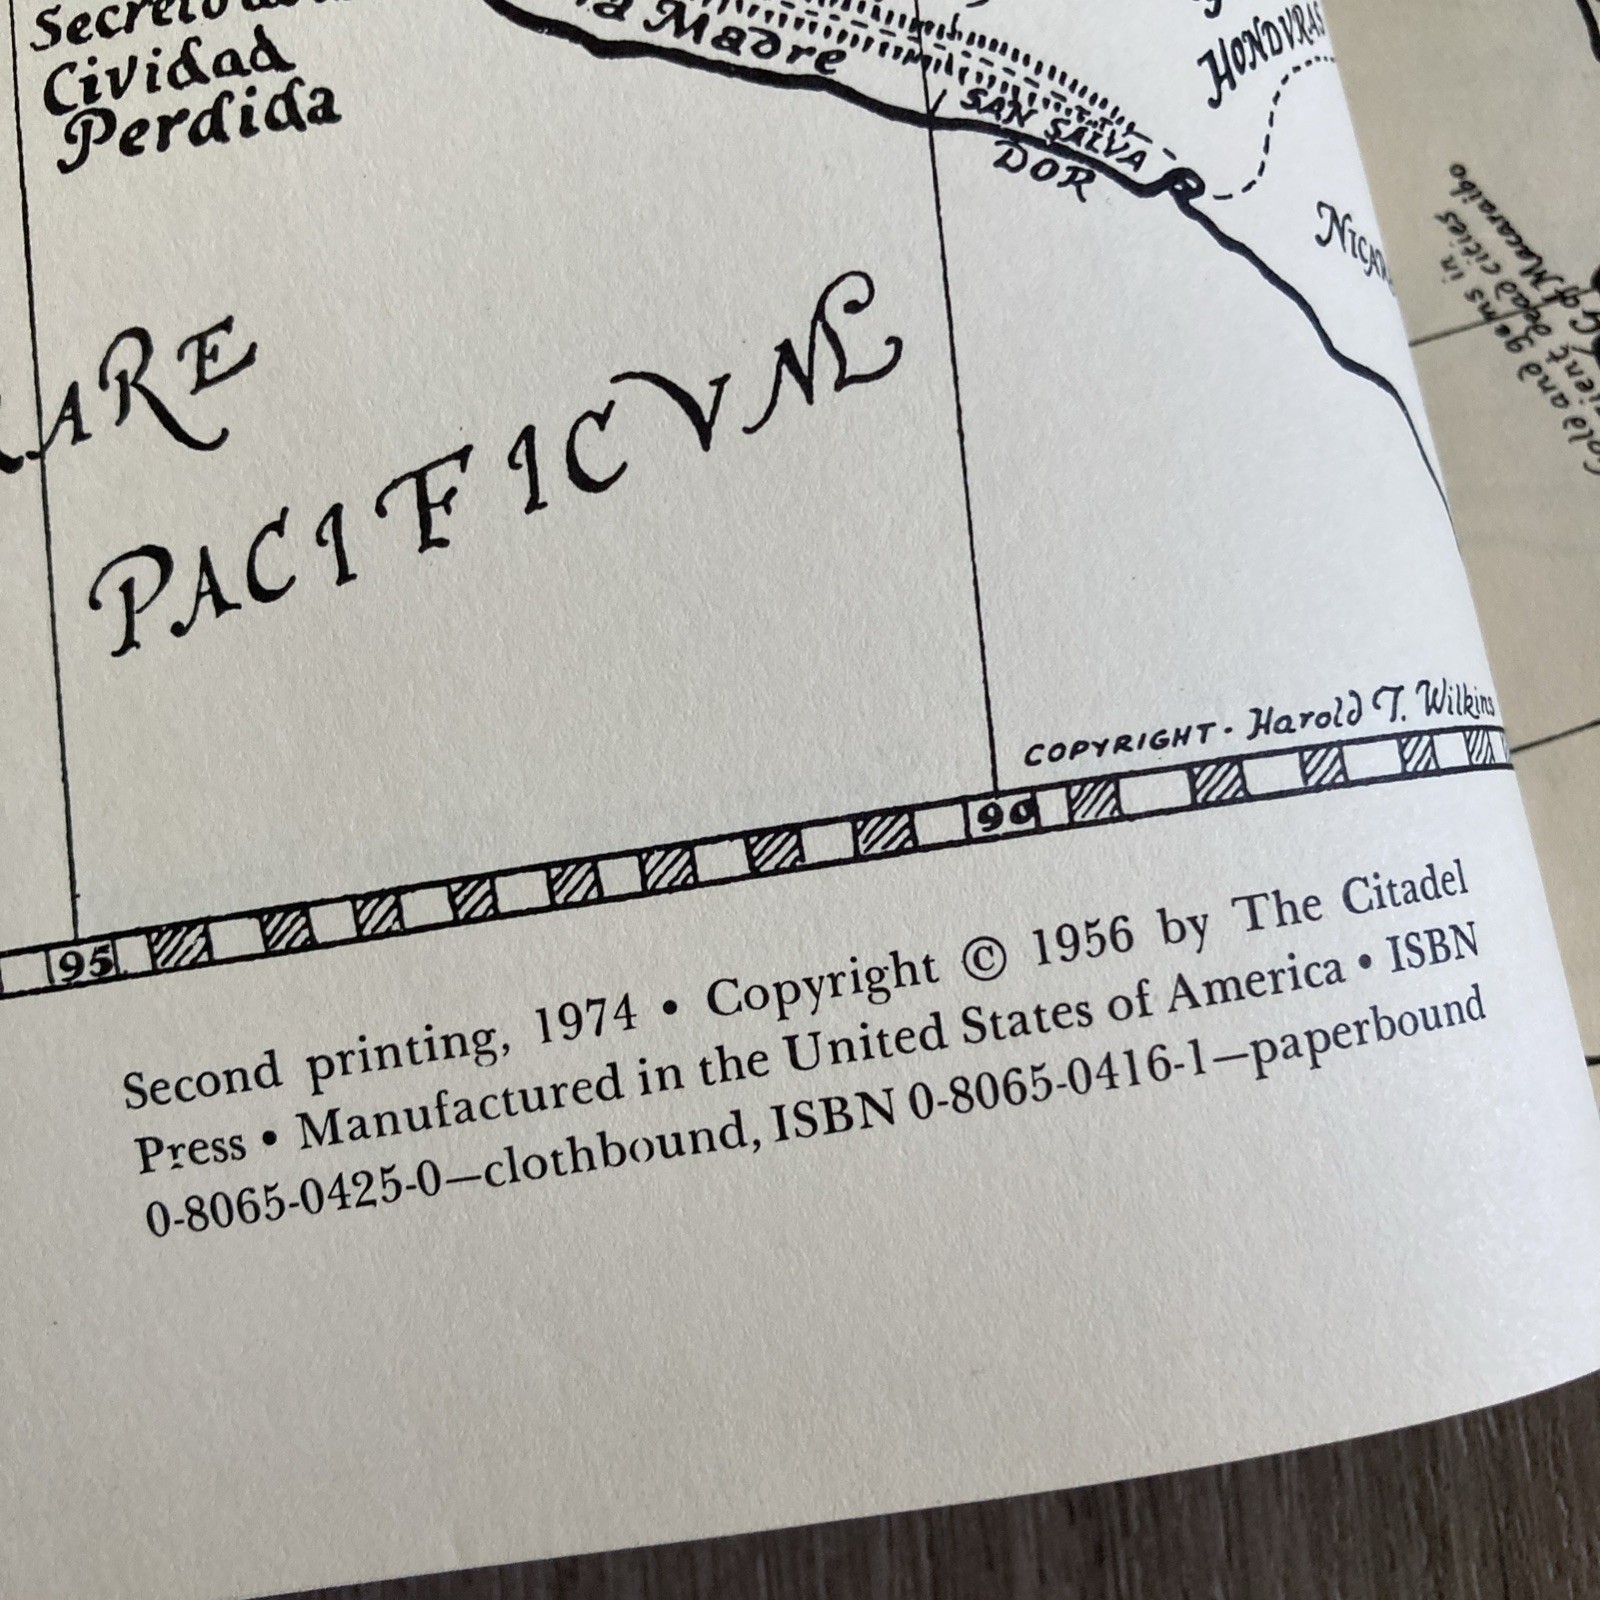 Cividad
Perdida
Madre
HONDVRAS
SAN SALVA
DOR
Gold and gems in
dead cities
Macaraibo
PACIFICVM
COPYRIGHT - Harold T. Wilkins
95
90
Second printing, 1974 • Copyright © 1956 by The Citadel
Press • Manufactured in the United States of America • ISBN
0-8065-0425-0—clothbound, ISBN 0-8065-0416-1—paperbound